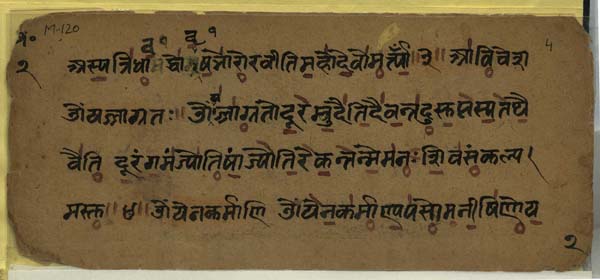 M-120
4
२ अस्य त्रिधा वृषभोरोरवीति महोदेवोमर्त्यां ३ आविवेश
ओंयज्जाग्रतः ओंयज्जाग्रतोदूरमुदैतिदैवन्तदुसुप्तस्यतथै
वैति दूरंगमंज्योतिषांज्योतिरेकन्तन्मेमनः शिवसंकल्प
मस्तु ॥ ४ ॥ ओंयेनकर्माणि ओंयेनकर्माण्यपसोमनीषिणोय
२